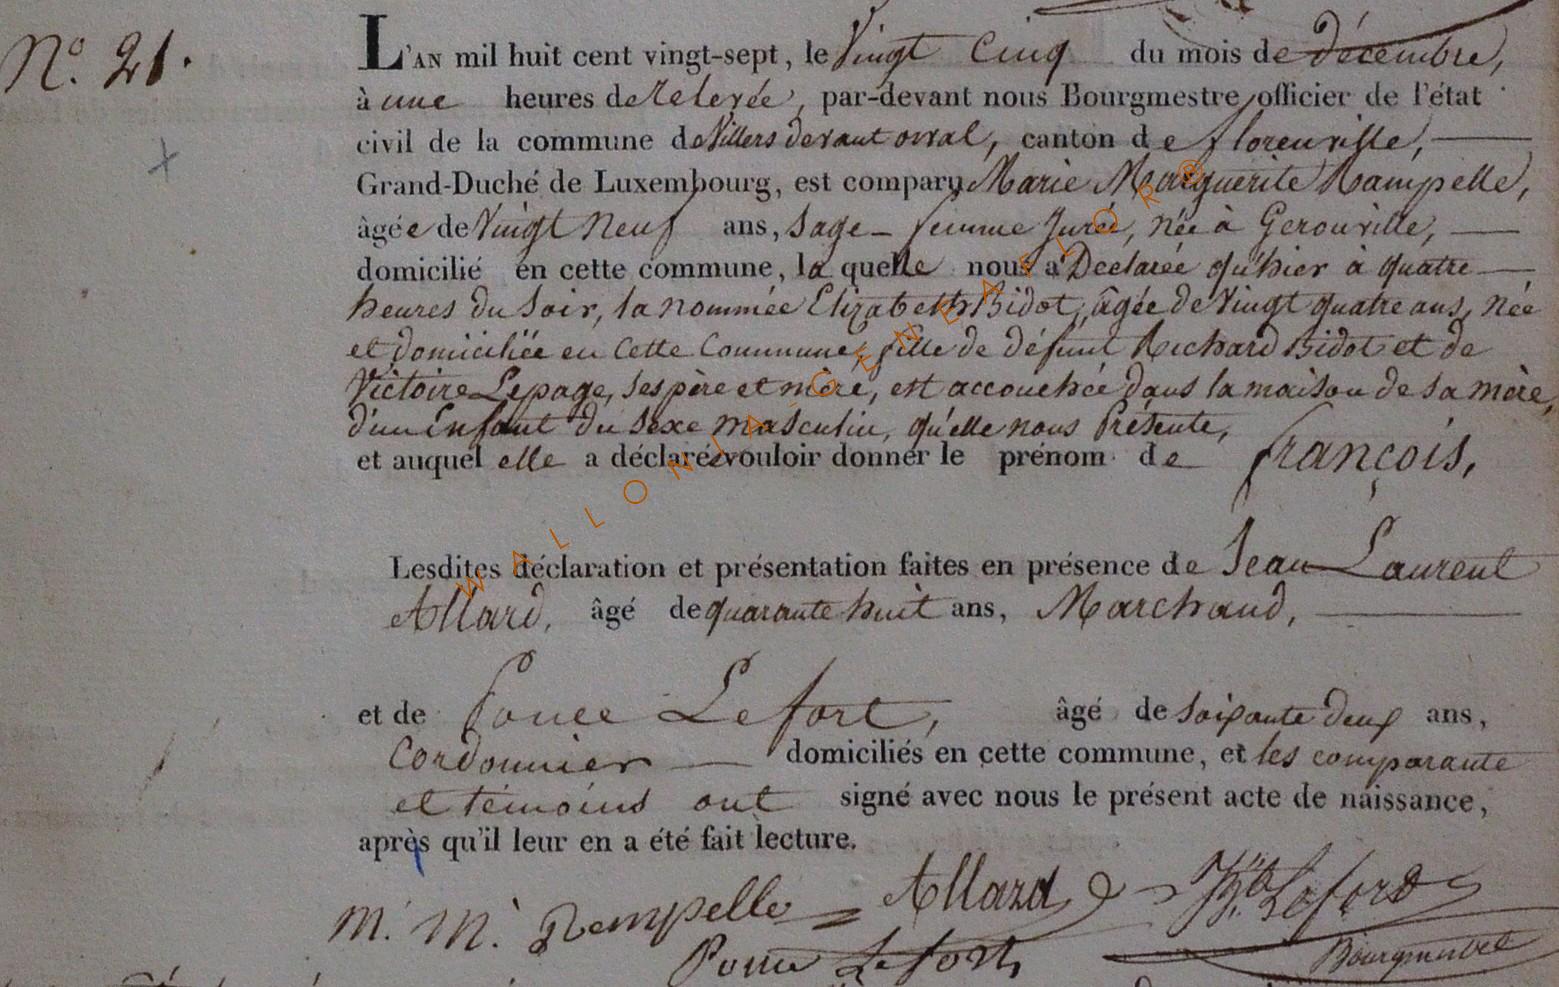 N.º 21.
L'AN mil huit cent vingt-sept, le Vingt Cinq du mois de décembre,
à une heures de relevée, par-devant nous Bourgmestre, officier de l'état
civil de la commune de Villers devant orval, canton de florenville,
Grand-Duché de Luxembourg, est comparu Marie Marguerite Rampelle,
âgée de Vingt Neuf ans, sage-femme Jurée, née à Gerouville,
domicilié en cette commune, la quelle nous a Déclarée qu'hier à quatre
heures du soir, la nommée Elizabeth Bidot, âgée de Vingt quatre ans, née
et domiciliée en cette Commune, fille de défunt Richard Bidot et de
Victoire Lepage, ses père et mère, est accouchée dans la maison de sa mère,
d'un Enfant du sexe masculin, qu'elle nous Présente,
et auquel elle a déclarée vouloir donner le prénom de françois,
Lesdites déclaration et présentation faites en présence de Jean Laurent
Allard, âgé de quarante huit ans, Marchand,
et de Ponce Lefort, âgé de soixante deux ans,
Cordonnier domiciliés en cette commune, et les comparante
et témoins ont signé avec nous le présent acte de naissance,
après qu'il leur en a été fait lecture.
M. M. Rempelle Allard Lefort
Ponce Lefort Bourgmestre
WALLONIA-GENEAFLOR®